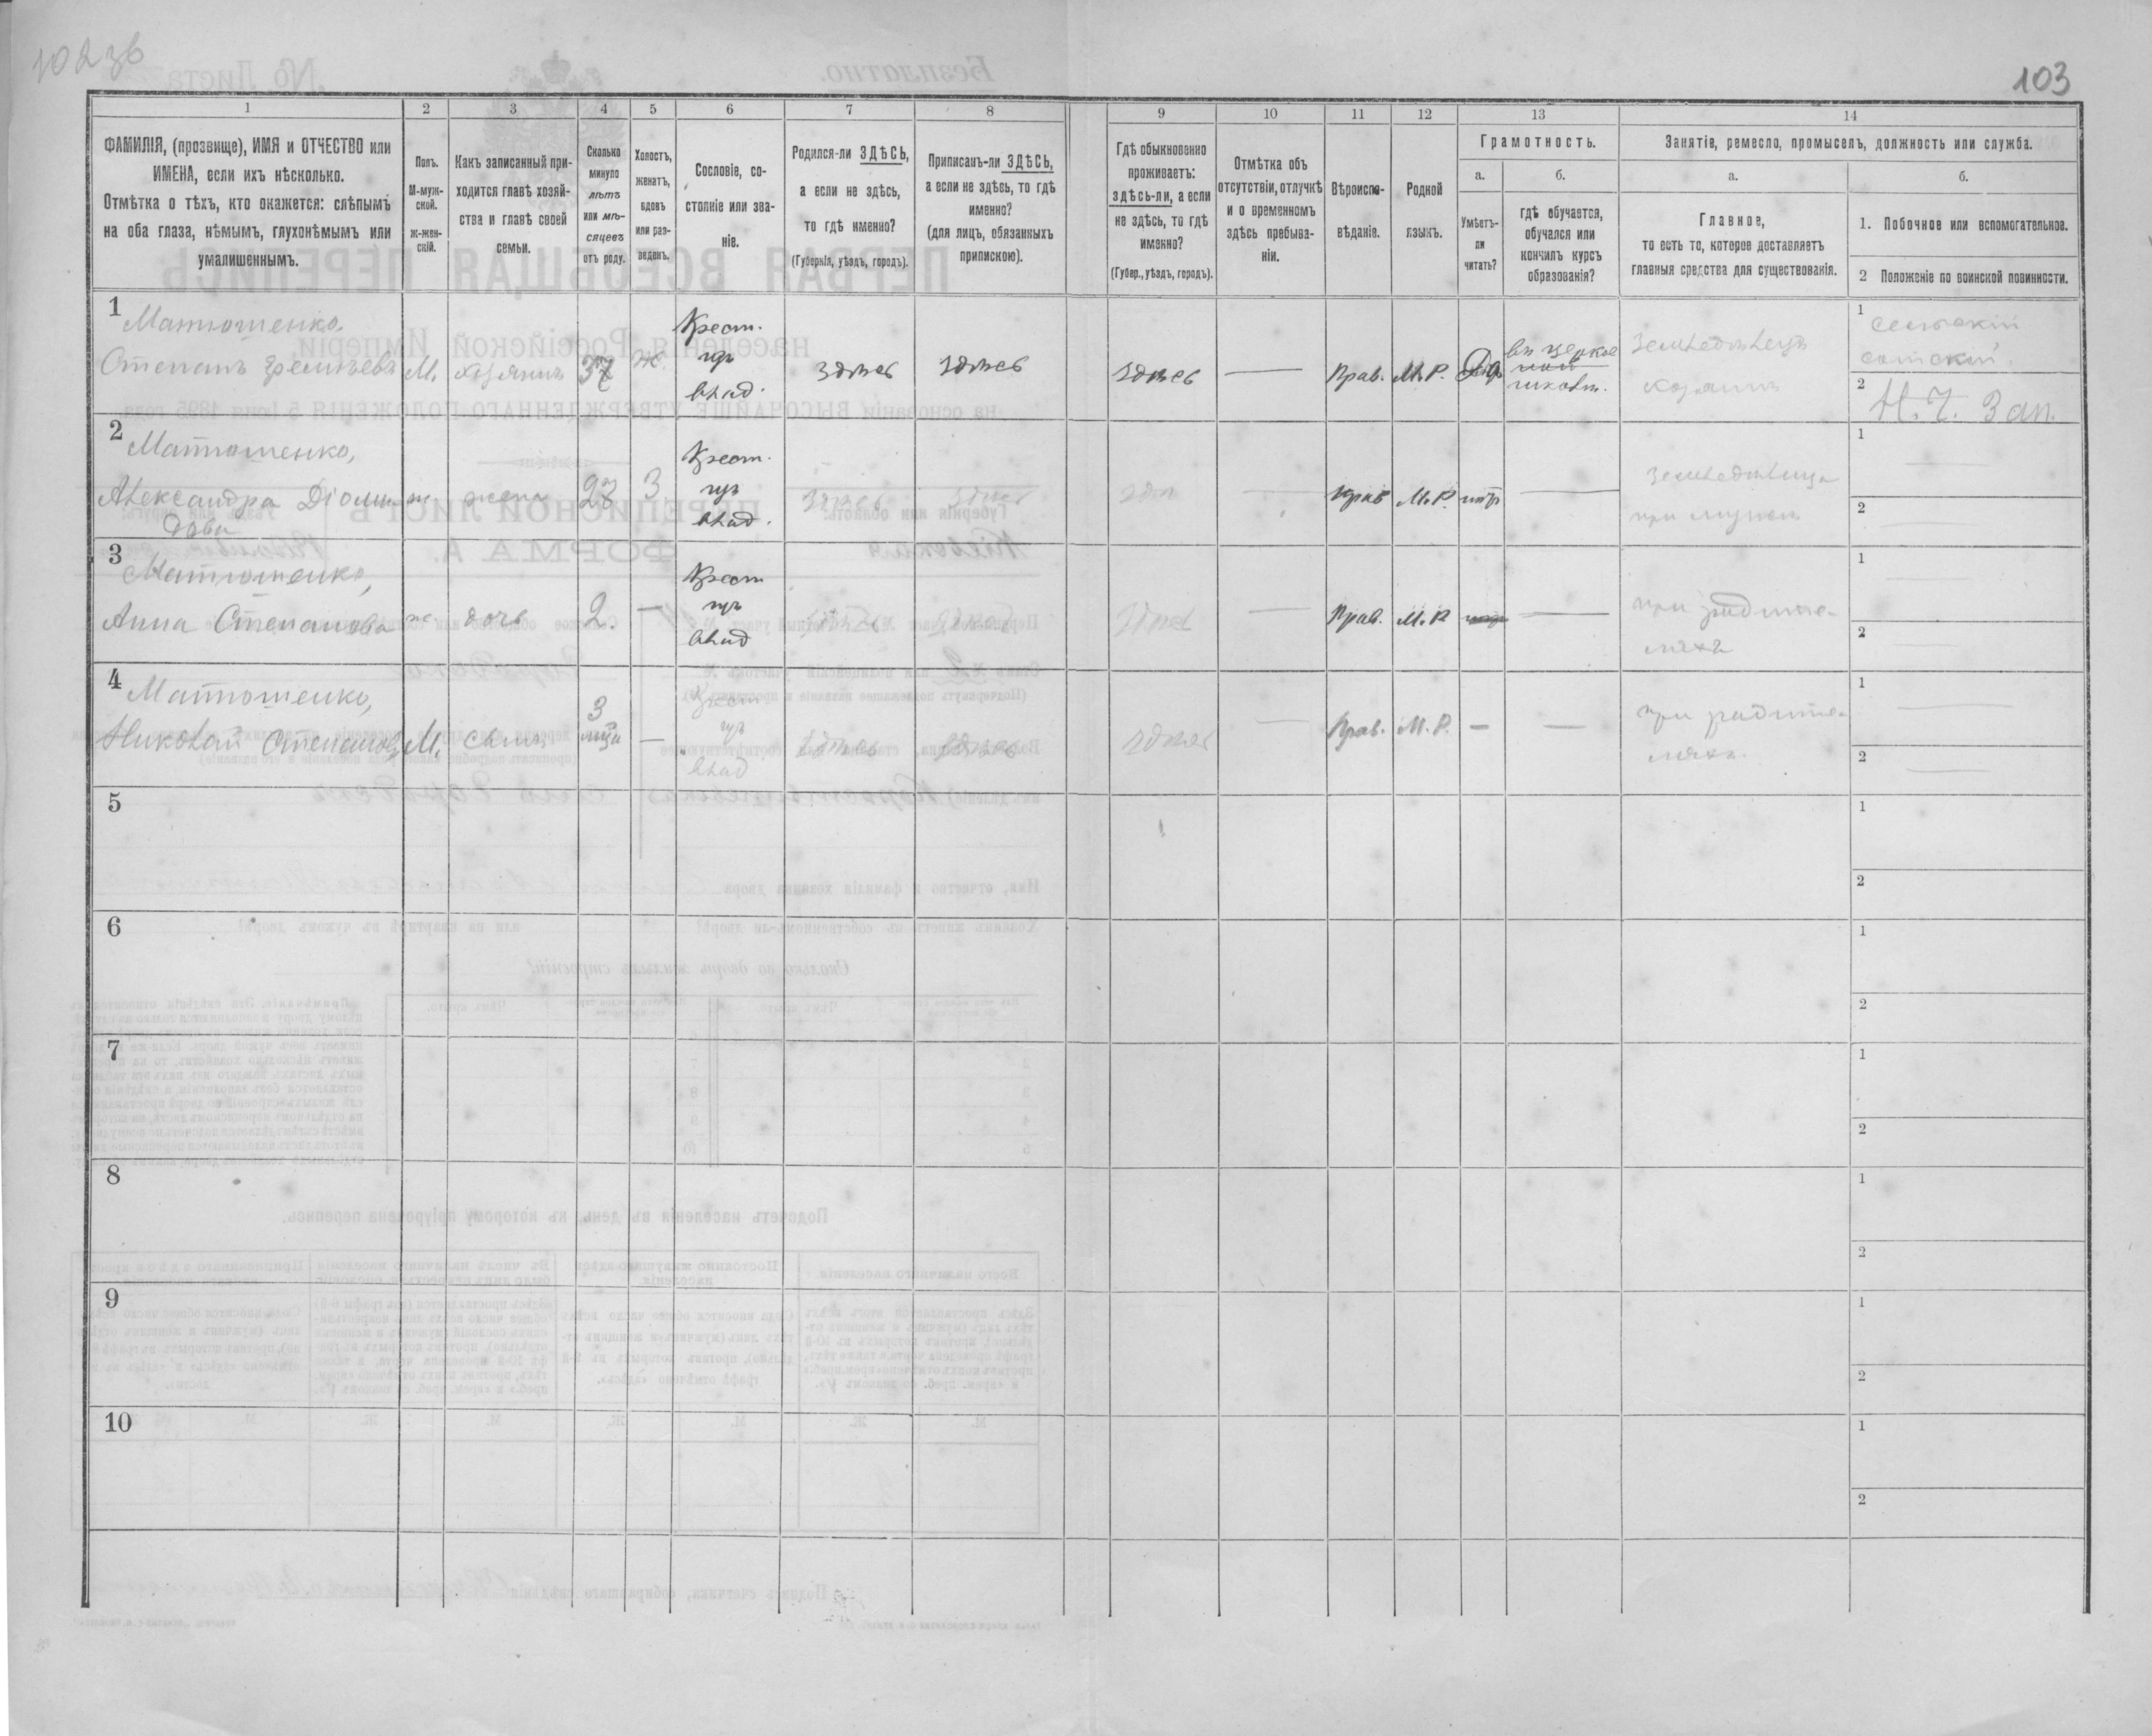 102 зв
103
1
2
3
4
5
6
7
8
9
10
11
12
13
14
ФАМИЛІЯ, (прозвище), ИМЯ и ОТЧЕСТВО или
ИМЕНА, если ихъ нѣсколько.
Отмѣтка о тѣхъ, кто окажется: слѣпымъ
на оба глаза, нѣмымъ, глухонѣмымъ или
умалишеннымъ.
Полъ.
М-муж-
ской.
ж-жен-
скій.
Какъ записанный при-
ходится главѣ хозяй-
ства и главѣ своей
семьи.
Сколько
минуло
лѣтъ
или мѣ-
сяцевъ
отъ роду.
Холостъ,
женатъ,
вдовъ
или раз-
веденъ.
Сословіе, со-
стояніе или зва-
ніе.
Родился-ли ЗДѢСЬ,
а если не здѣсь,
то гдѣ именно?
(Губернія, уѣздъ, городъ).
Приписанъ-ли ЗДѢСЬ,
а если не здѣсь, то гдѣ
именно?
(для лицъ, обязанныхъ
припискою).
Гдѣ обыкновенно
проживаетъ:
здѣсь-ли, а если
не здѣсь, то гдѣ
именно?
(Губер., уѣздъ, городъ).
Отмѣтка объ
отсутствіи, отлучкѣ
и о временномъ
здѣсь пребыва-
ніи.
Вѣроиспо-
вѣданіе.
Родной
языкъ.
Грамотность.
а.
Умѣетъ-
ли
читать?
б.
гдѣ обучается,
обучался или
кончилъ курсъ
образованія?
Занятіе, ремесло, промыселъ, должность или служба.
а.
Главное,
то есть то, которое доставляетъ
главныя средства для существованія.
б.
1. Побочное или вспомогательное.
2 Положеніе по воинской повинности.
1
Матюшенко,
Степанъ
М.
хозяинъ
37
ж.
Крест.
влад.
здѣсь
здѣсь
здѣсь
—
Прав.
М.Р.
Да
въ церков
школѣ.
земледѣлецъ
хозяинъ
1
сельскій
сотскій
2
Н. Ч. Зап.
2
Матюшенко,
Александра
ж
жена
3
Крест.
влад.
здѣсь
здѣсь
—
прав
М.Р.
нѣтъ
—
земледѣлица
при мужѣ
1
—
2
—
3
Матюшенко,
Анна Степанова
ж
дочь
2.
—
Крест
влад
здѣсь
здѣсь
здѣсь
—
Прав.
М.Р
—
при родите-
ляхъ
1
—
2
—
4
Матюшенко,
Николай Степановъ
М.
сынъ
3
мѣц
—
Крест
влад
здѣсь
здѣсь
здѣсь
—
Прав.
М.Р.
—
—
при родите-
ляхъ
1
—
2
—
5
1
2
6
1
2
7
1
2
8
1
2
9
1
2
10
1
2